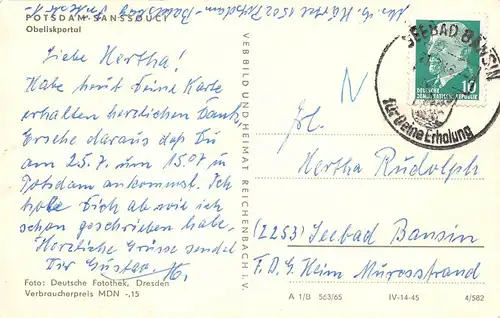 POTSDAM-SANSSOUCI
Obeliskportal
Liebe Hertha!
Habe heut Deine Karte
erhalten herzlichen Dank
Ersehe daraus daß Du
am 25.7. um 15.07 in
Potsdam ankommst. Ich
hole Dich ab wie ich
schon geschrieben habe.
Herzliche Grüsse sendet
Dir Gustav
Foto: Deutsche Fotothek, Dresden
Verbraucherpreis MDN -,15
VEB BILD UND HEIMAT REICHENBACH I. V.
SEEBAD BANSIN
für Deine Erholung
DEUTSCHE
DEMOKRATISCHE REPUBLIK
10
N
Hertha Rudolph
(2253) Seebad Bansin
F.D.G. Heim Meeresstrand
A 1/B 563/65 IV-14-45 4/582